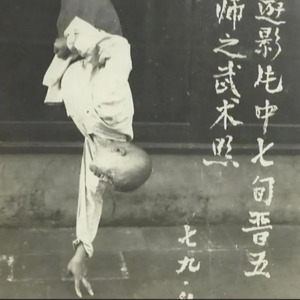 遊影片中七旬晋五
师之武术照
七九.